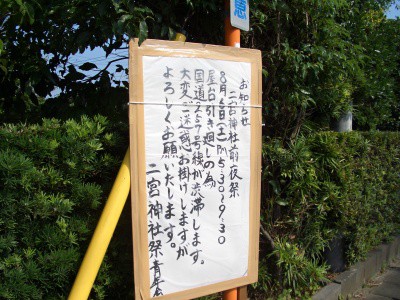 お知らせ
二宮神社前夜祭
8月6日(土)PM5:30〜9:30
屋台引き廻しの為
国道257号線が渋滞します。
大変ご迷惑お掛けしますが
よろしくお願いたします。
二宮神社祭青年